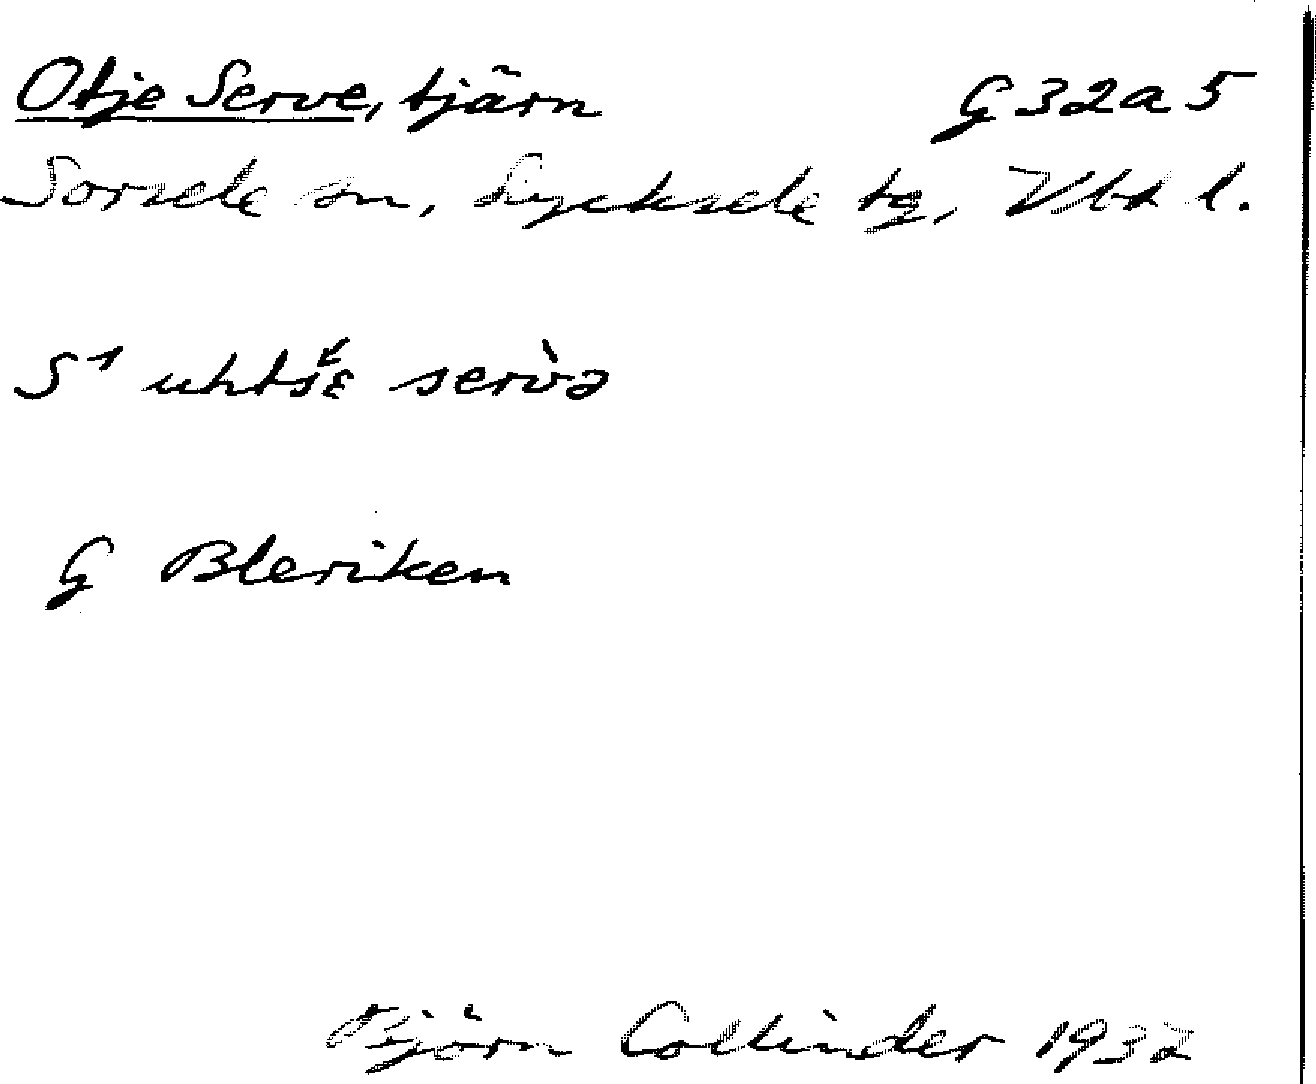 Otje Serve, tjärn G 32 a 5
Sorsele sn, Lycksele tg, Vbt l.
S¹ uhtš́ɛ serv̀ə
G Bleriken
Björn Collinder 1932